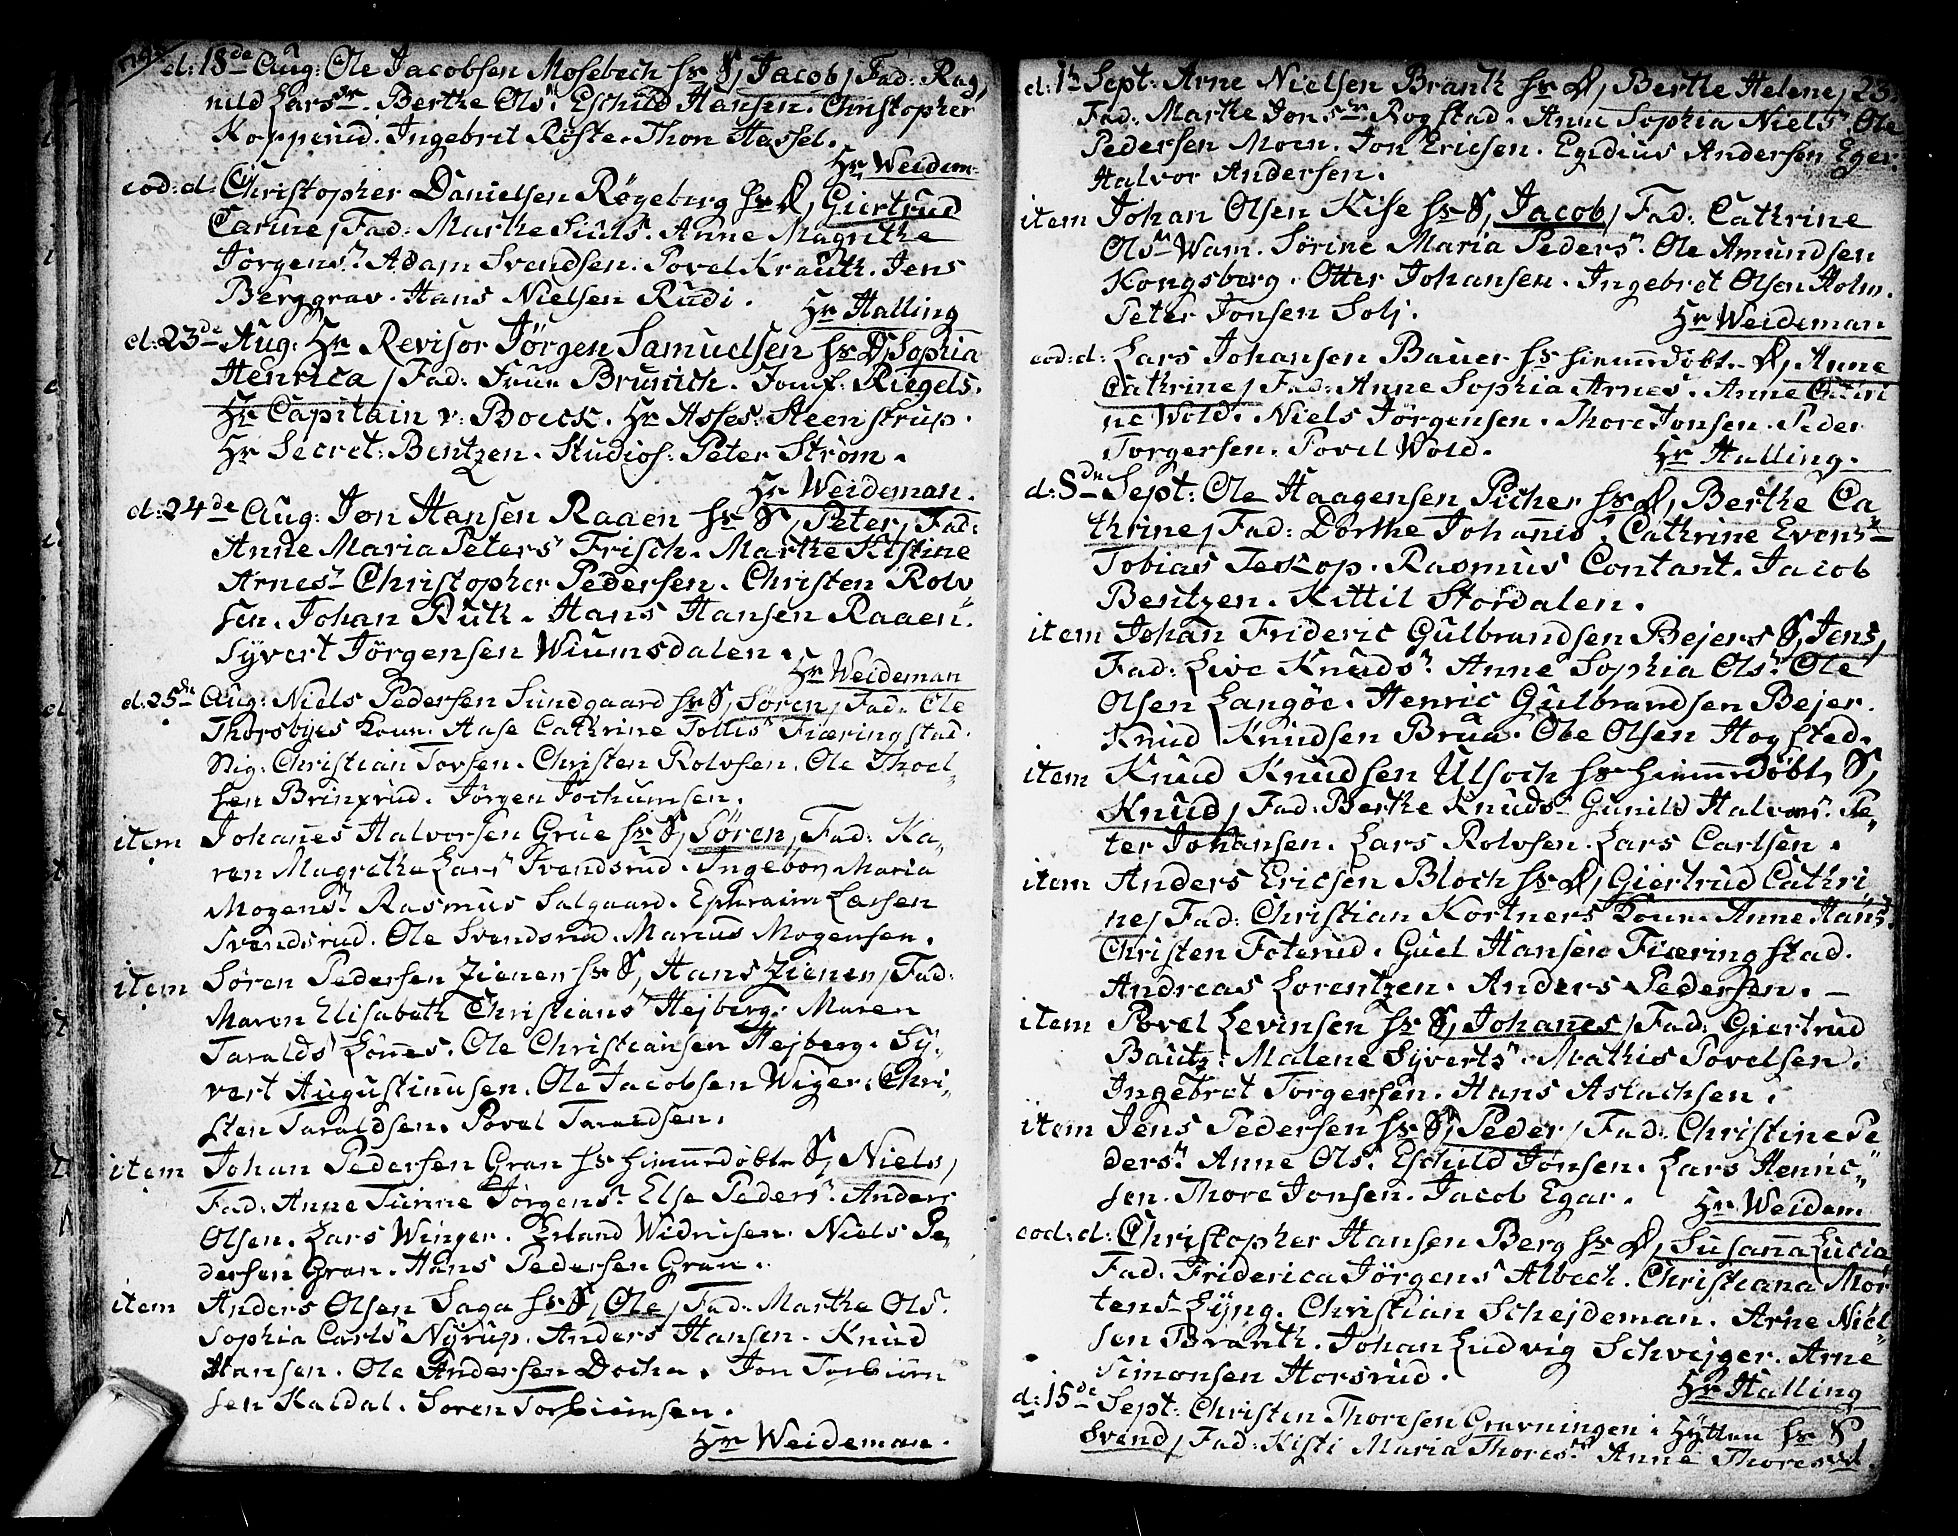 d: 18de Aug: Ole Jacobsen Mosebech hs S, Jacob, Fad: Rag,
nild Larsdr. Berthe Olsn. Eschild Hansen. Christopher
Kopperud. Ingebrit Røste. Thon Hassel.
Hr Weidem-
eod: d: Christopher Danielsen Røgeberg hs D, Giertrud
Carine, Fad: Marthe Siuls. Anne Magrethe
Jørgensn. Adam Svendsen. Povel Krauth. Jens
Berggrav. Hans Nielsen Rudi.
Hr Halling
d: 23de Aug: Hr Revisor Jörgen Samuelsen hs D, Sophia
Henrica, Fad: Fruе Brunich. Jomf: Riegels.
Hr Capitain v: Bock. Hr Asses: Steenstrup.
Hr Secret: Bentzen. Studios: Peter Strøm.
Hr Weideman.
d: 24de Aug: Jon Hansen Raaen hs S, Peter, Fad:
Anne Maria Peters Frisch. Marthe Kistine
Arnesn Christopher Pedersen. Christen Rolv
sen. Johan Ruth. Hans Hansen Raaen.
Syvert Jörgensen Wiumsdalen.
Hr Weideman
d: 25de Aug: Niels Pedersen Sundgaard hs S, Søren, Fad: Ole
Thorsbyes Koun. Aase Cathrine Tollis Fiæringstad.
Stig: Christian Tovsen. Christen Rolvsen. Ole Thoel-
sen Brinxrud. Jørgen Jochumsen.
item Johannes Halvorsen Grue hs S, Søren, Fad: Ka,
ren Magrethe Larsn Svendsrud. Ingebor Maria
Mogensn. Rasmus Salgaard. Ephraim Larsen
Svendsrud. Ole Svendsrud. Marius Mogensen.
item Søren Pedersen Ziener hs S, Hans Ziener, Fad:
Maren Elisabeth Christians Hejberg. Maren
Taralds Lønnes. Ole Christiansen Hejberg. Sy-
vert Augustinusen. Ole Jacobsen Wiger. Chri-
sten Taraldsen. Povel Taraldsen.
item Johan Pedersen Gran hs himmedøbte S, Niels,
Fad: Anne Turine Jørgensn. Else Pedersn. Anders
Olsen. Lars Winger. Erland Widnisen. Niels Pe-
dersen Gran. Hans Pedersen Gran.
item Anders Olsen Saga hs S, Ole, Fad: Marthe Ols.
Sophia Carls Nyrup. Anders Hansen. Knud
Hansen. Ole Andersen Docka. Jon Torbiörn
sen Kaldal. Soren Torbiörnsen.
Hr Weideman.
d: 1te Sept: Arne Nielsen Branth hs D, Berthe Helene, 23.
Fad: Marthe Jonsdr Rogstad. Anne Sophia Nielsn. Ole
Pedersen Moen. Jon Ericsen. Egidius Andersen Eger.
Halvor Andersen.
item Johan Olsen Kise hs S, Jacob, Fad: Cathrine
Olsn Wam. Sörine Maria Pedersn. Ole Amundsen
Kongsberg. Otter Johansen. Ingebret Olsen Holm.
Peter Jonsen Solj.
Hr Weideman
eod: d: Lars Johansen Bauer hs himmedøbte D, Anne
Cathrine, Fad: Anne Sophia Arnes. Anne Cathri
ne Wold. Niels Jörgensen. Thore Jonsen. Peder
Torgersen. Povel Wold.
Hr Halling.
d: 8de Sept: Ole Haagensen Picher hs D, Berthe Ca
thrine, Fad: Dorthe Johannis. Cathrine Evensn
Tobias Teskop. Rasmus Contant. Jacob
Bentzen. Kittil Stordalen.
item Johan Frideric Gulbrandsen Bejers S, Jens,
Fad: Live Knudsn. Anne Sophia Olsn. Ole
Olsen Langöe. Henric Gulbrandsen Bejer.
Knud Knudsen Brua. Ole Olsen Hogsted.
item Knud Knudsen Ulsoch hs himmedøbte S,
Knud, Fad: Berthe Knuds. Gunild Halvors. Pe,
ter Johansen. Lars Rolvsen. Lars Carlsen.
item Anders Ericsen Bloch hs D, Giertrud Cathri
ne, Fad: Christian Kortners Koun. Anne Hans
Christen Foterud. Guel Hansen Fiæringstad.
Andreas Lorentzen. Anders Pedersen. -
item Povel Levinsen hs S, Johannes, Fad: Giertrud
Bautz: Malene Syverts. Mathis Povelsen.
Ingebret Torgersen. Hans Aslachsen.
item Jens Pedersen hs S, Peder, Fad: Christine Pe
dersn. Anne Olsn. Eschild Jonsen. Lars Henric-
sen. Thore Jonsen. Jacob Egar.
Hr Weidem
eod: d: Christopher Hansen Berg hs D, Susanna Lucia
Fad: Friderica Jörgens Albech. Christiana Mor
tens Lyng. Christian Schejdeman. Arne Niel-
sen Branth. Johan Ludvig Schvejger. Arne
Simonsen Horsrud.
Hr Halling
d: 15de Sept: Christen Thoresen Gravningen i Hytten hs S,
Svend, Fad: Kisti Maria Thoresn. Anne Thoresd.